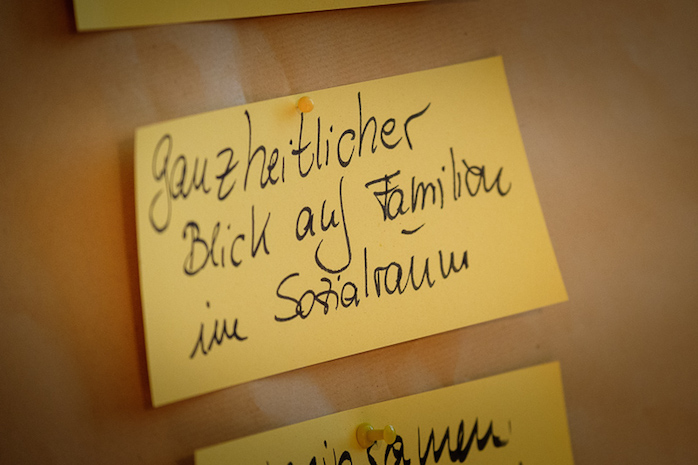 Ganzheitlicher
Blick auf Familien
im Sozialraum